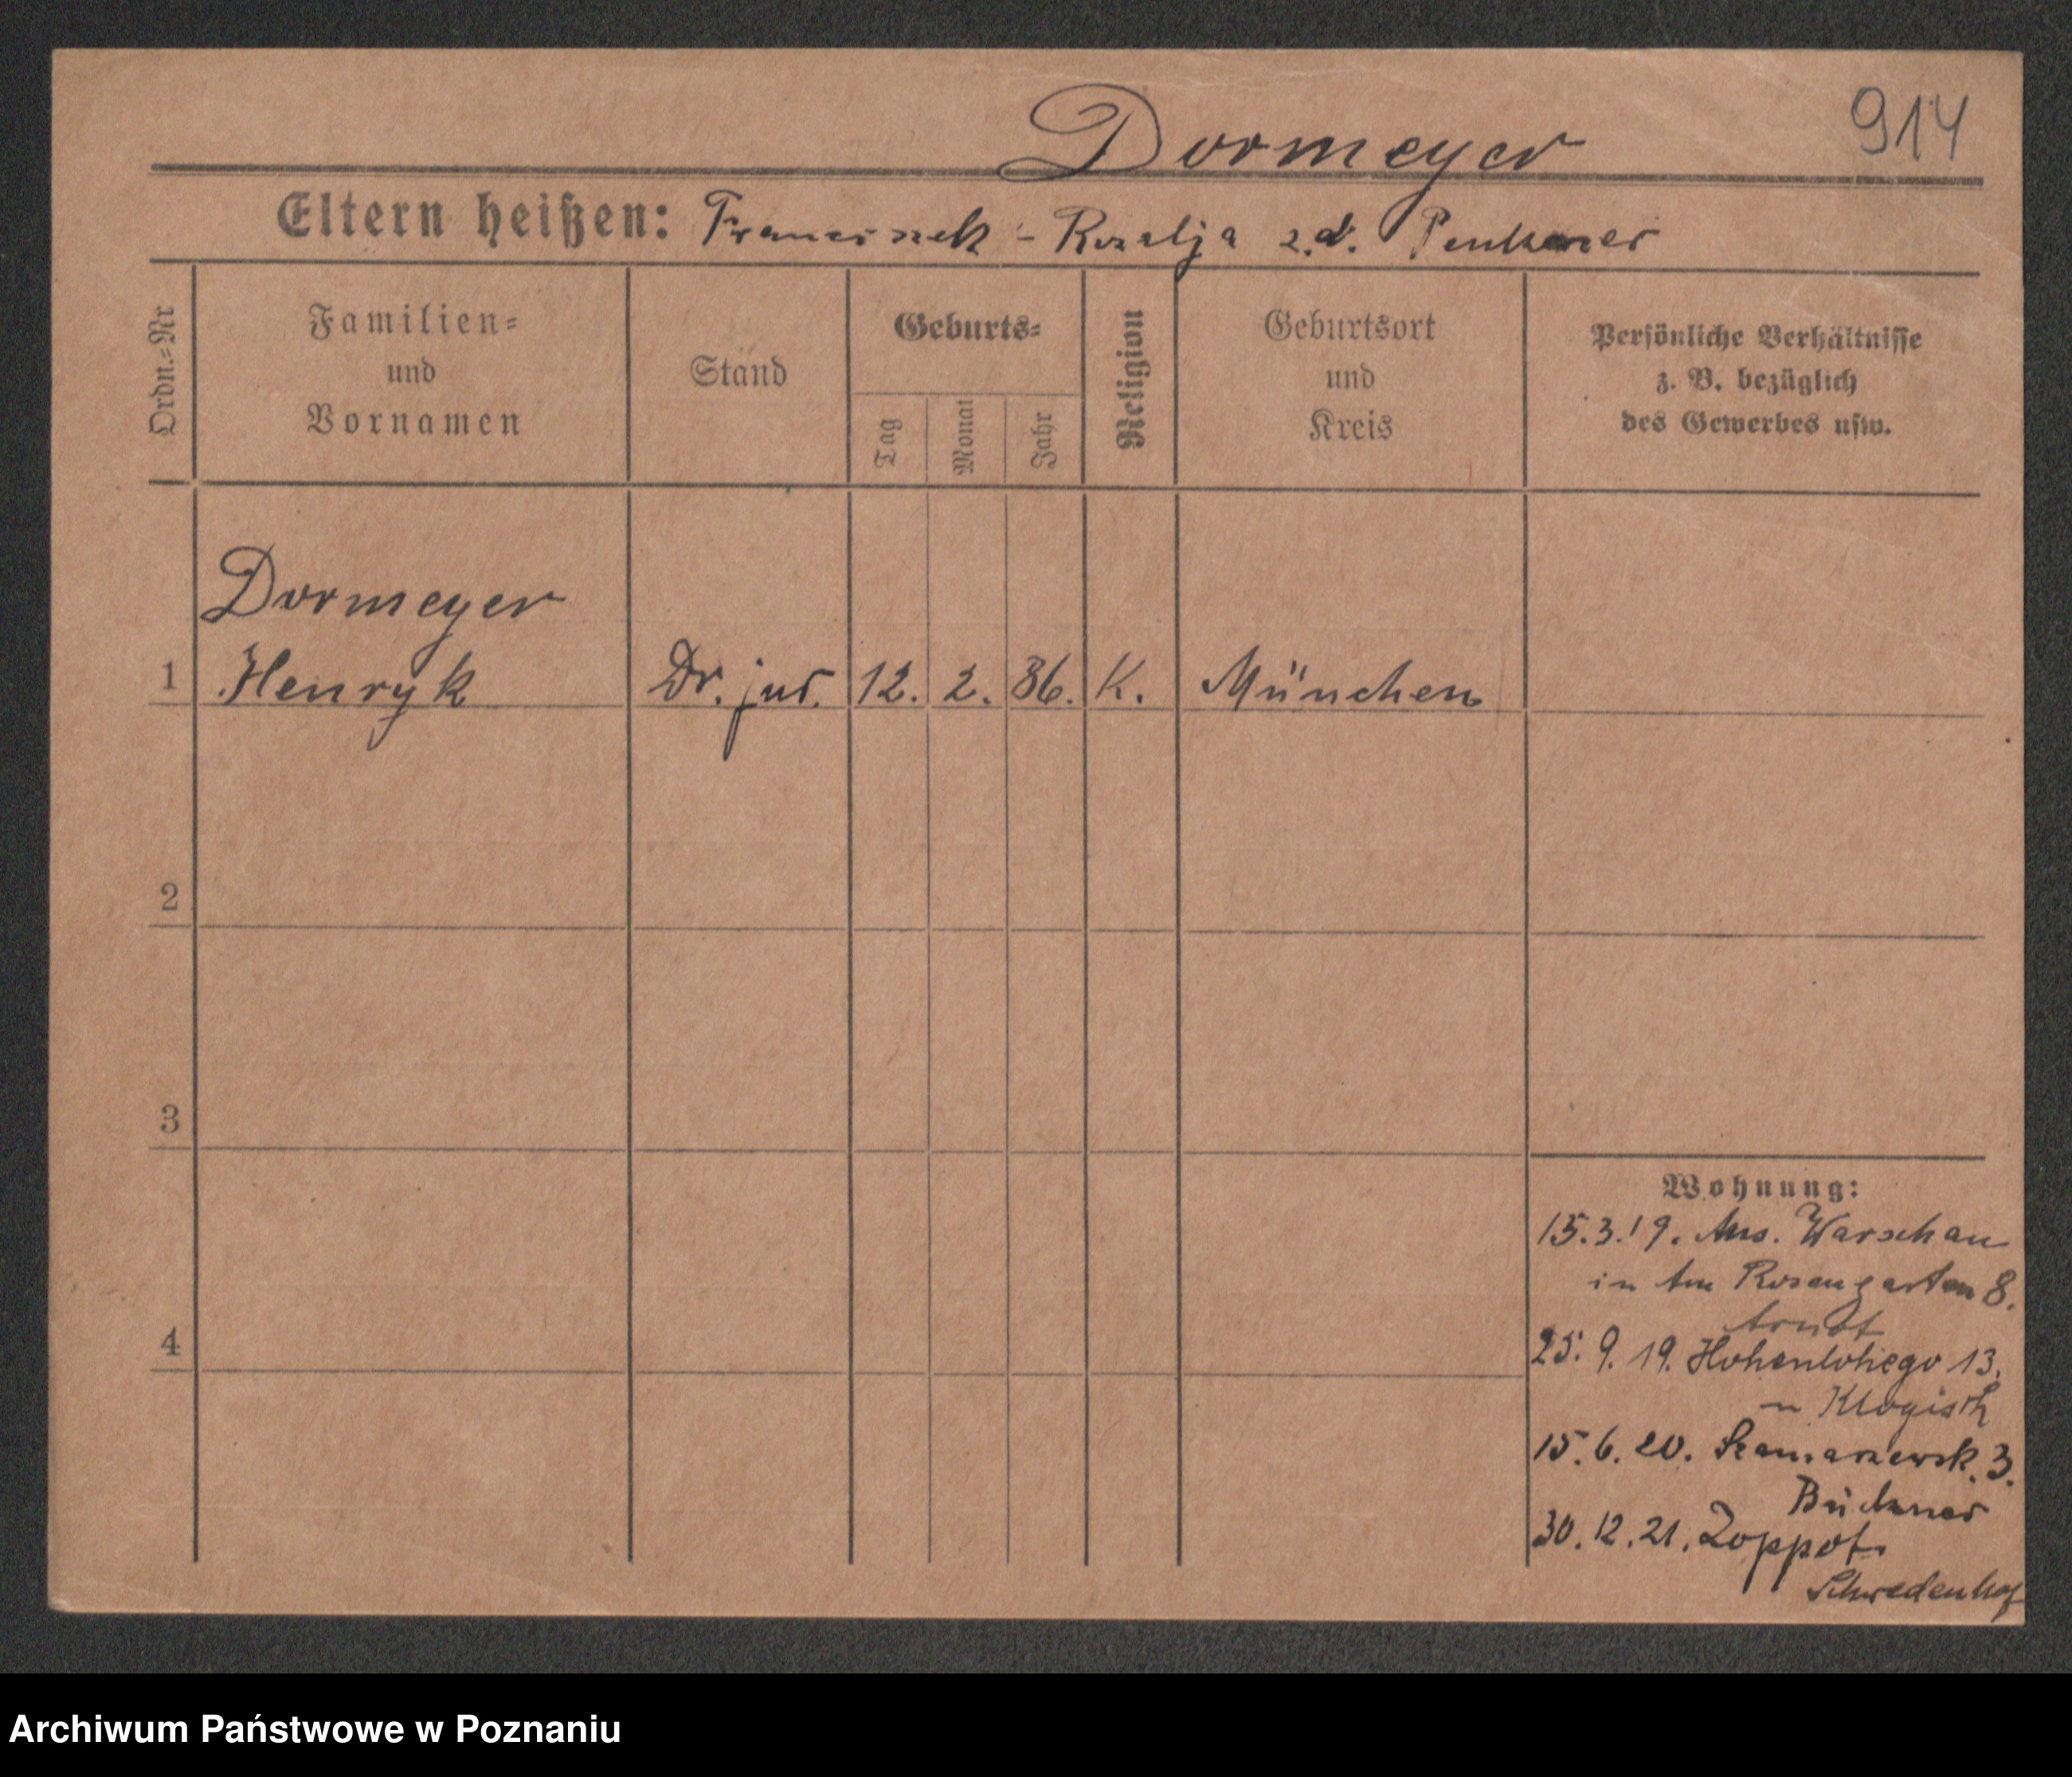 914
Dormeyer
Eltern heißen: Franciszek - Rozalja z.d.
Ordn.=Nr
Familien=
und
Vornamen
Stand
Geburts=
Tag
Monat
Jahr
Religion
Geburtsort
und
Kreis
Persönliche Verhältnisse
z. B. bezüglich
des Gewerbes usw.
Dormeyer
1 Henryk Dr. jur. 12. 2. 86. K. München
2
3
4
Wohnung:
15.3.19. Aus. Warschau
in Am Rosengarten 8.
Arndt
25. 9. 19. Hohenlohego 13.
15. 6. 20. Szamarzewsk. 3.
Büchner
30. 12. 21. Zoppot
Schwedenhof
Archiwum Państwowe w Poznaniu